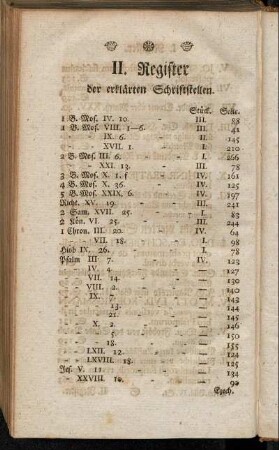 II. Register
der erklärten Schriftstellen.
Stück. Seite.
1 B. Mos. IV. 10. - III. 88
1 B. Mos. VIII. 1–6. III. 41
- - IX. 6. - II. 145
- - XVII. 1. - I. 210
2 B. Mos. III. 6. - I. 266
- - XXI. 13. - III. 78
3 B. Mos. X. 1. f IV. 161
4 B. Mos. X. 36. - IV. 125
5 B. Mos. XXIX. 6. IV. 197
Richt. XV. 19. - III. 241
2 Sam. XVII. 25. - I. 83
2 Kön. VI. 25. - III. 244
1 Chron. III. 20. - IV. 64
- - VII. 18. - I. 98
Hiob IX. 26. - I. 78
Psalm III. 7. - IV. 123
- - IV. 4. - -
- - VII. 14. - -
- - VIII. 2. - - 140
- - IX. 7. - - 143
- - - 13. - - 144
- - - 21. - - 145
- - X. 2. - -
- - - 5. - - 150
- - - 18. - -
- - LXII. 12. - - 124
- - LXVIII. 18. - - 130
Jes. V. 11. - - 124
- XXVIII. 10. - - 90
Spech.